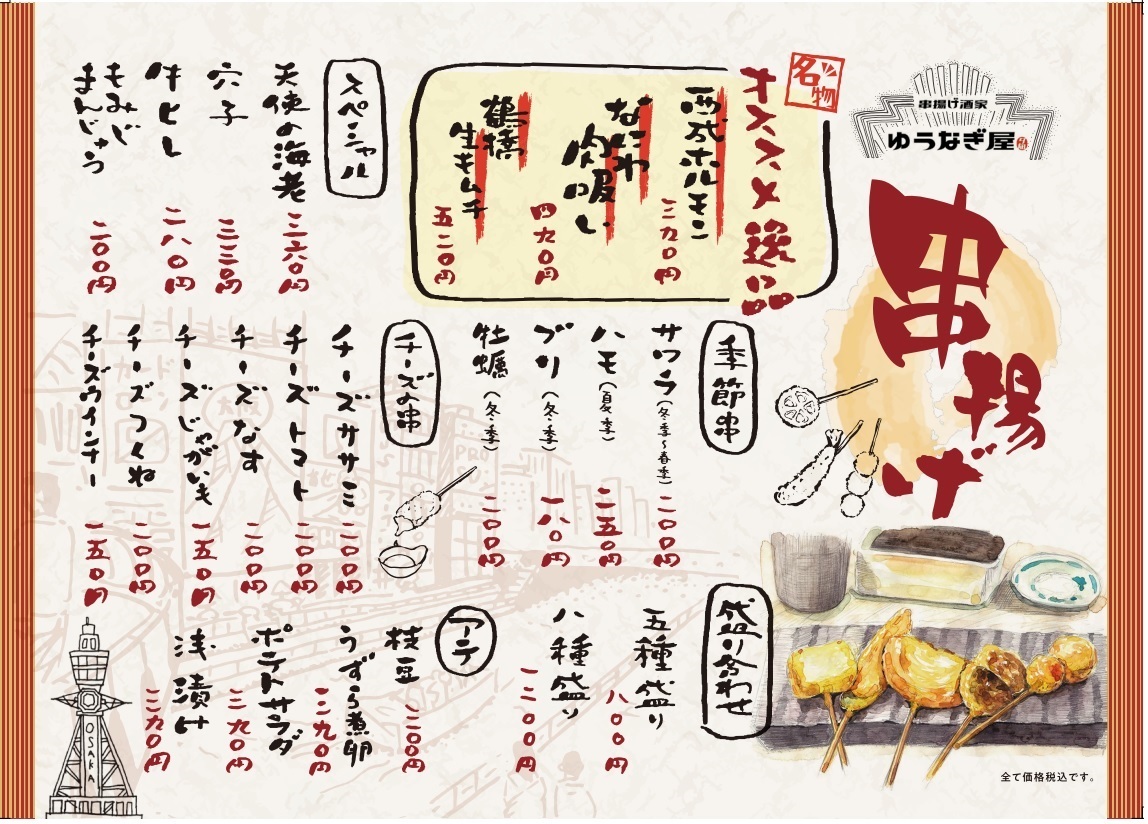 串揚げ酒家
ゆうなぎ屋
串揚げ
名物
オススメ逸品
西成ホルモン 三九〇円
なにわ肉吸い 四九〇円
鶴橋生キムチ 五二〇円
スペシャル
天使の海老 三六〇円
穴子 三三〇円
牛ヒレ 二八〇円
もみじまんじゅう 二〇〇円
季節串
サワラ(冬季〜春季) 二〇〇円
ハモ(夏季) 二五〇円
ブリ(冬季) 一八〇円
牡蠣(冬季) 二〇〇円
チーズの串
チーズササミ 二〇〇円
チーズトマト 二〇〇円
チーズなす 二〇〇円
チーズじゃがいも 一五〇円
チーズつくね 二〇〇円
チーズウインナー 一五〇円
盛り合わせ
五種盛り 八〇〇円
八種盛り 一二〇〇円
アテ
枝豆
うずら煮卵 二九〇円
ポテトサラダ 三九〇円
浅漬け 二九〇円
OSAKA
全て価格税込です。